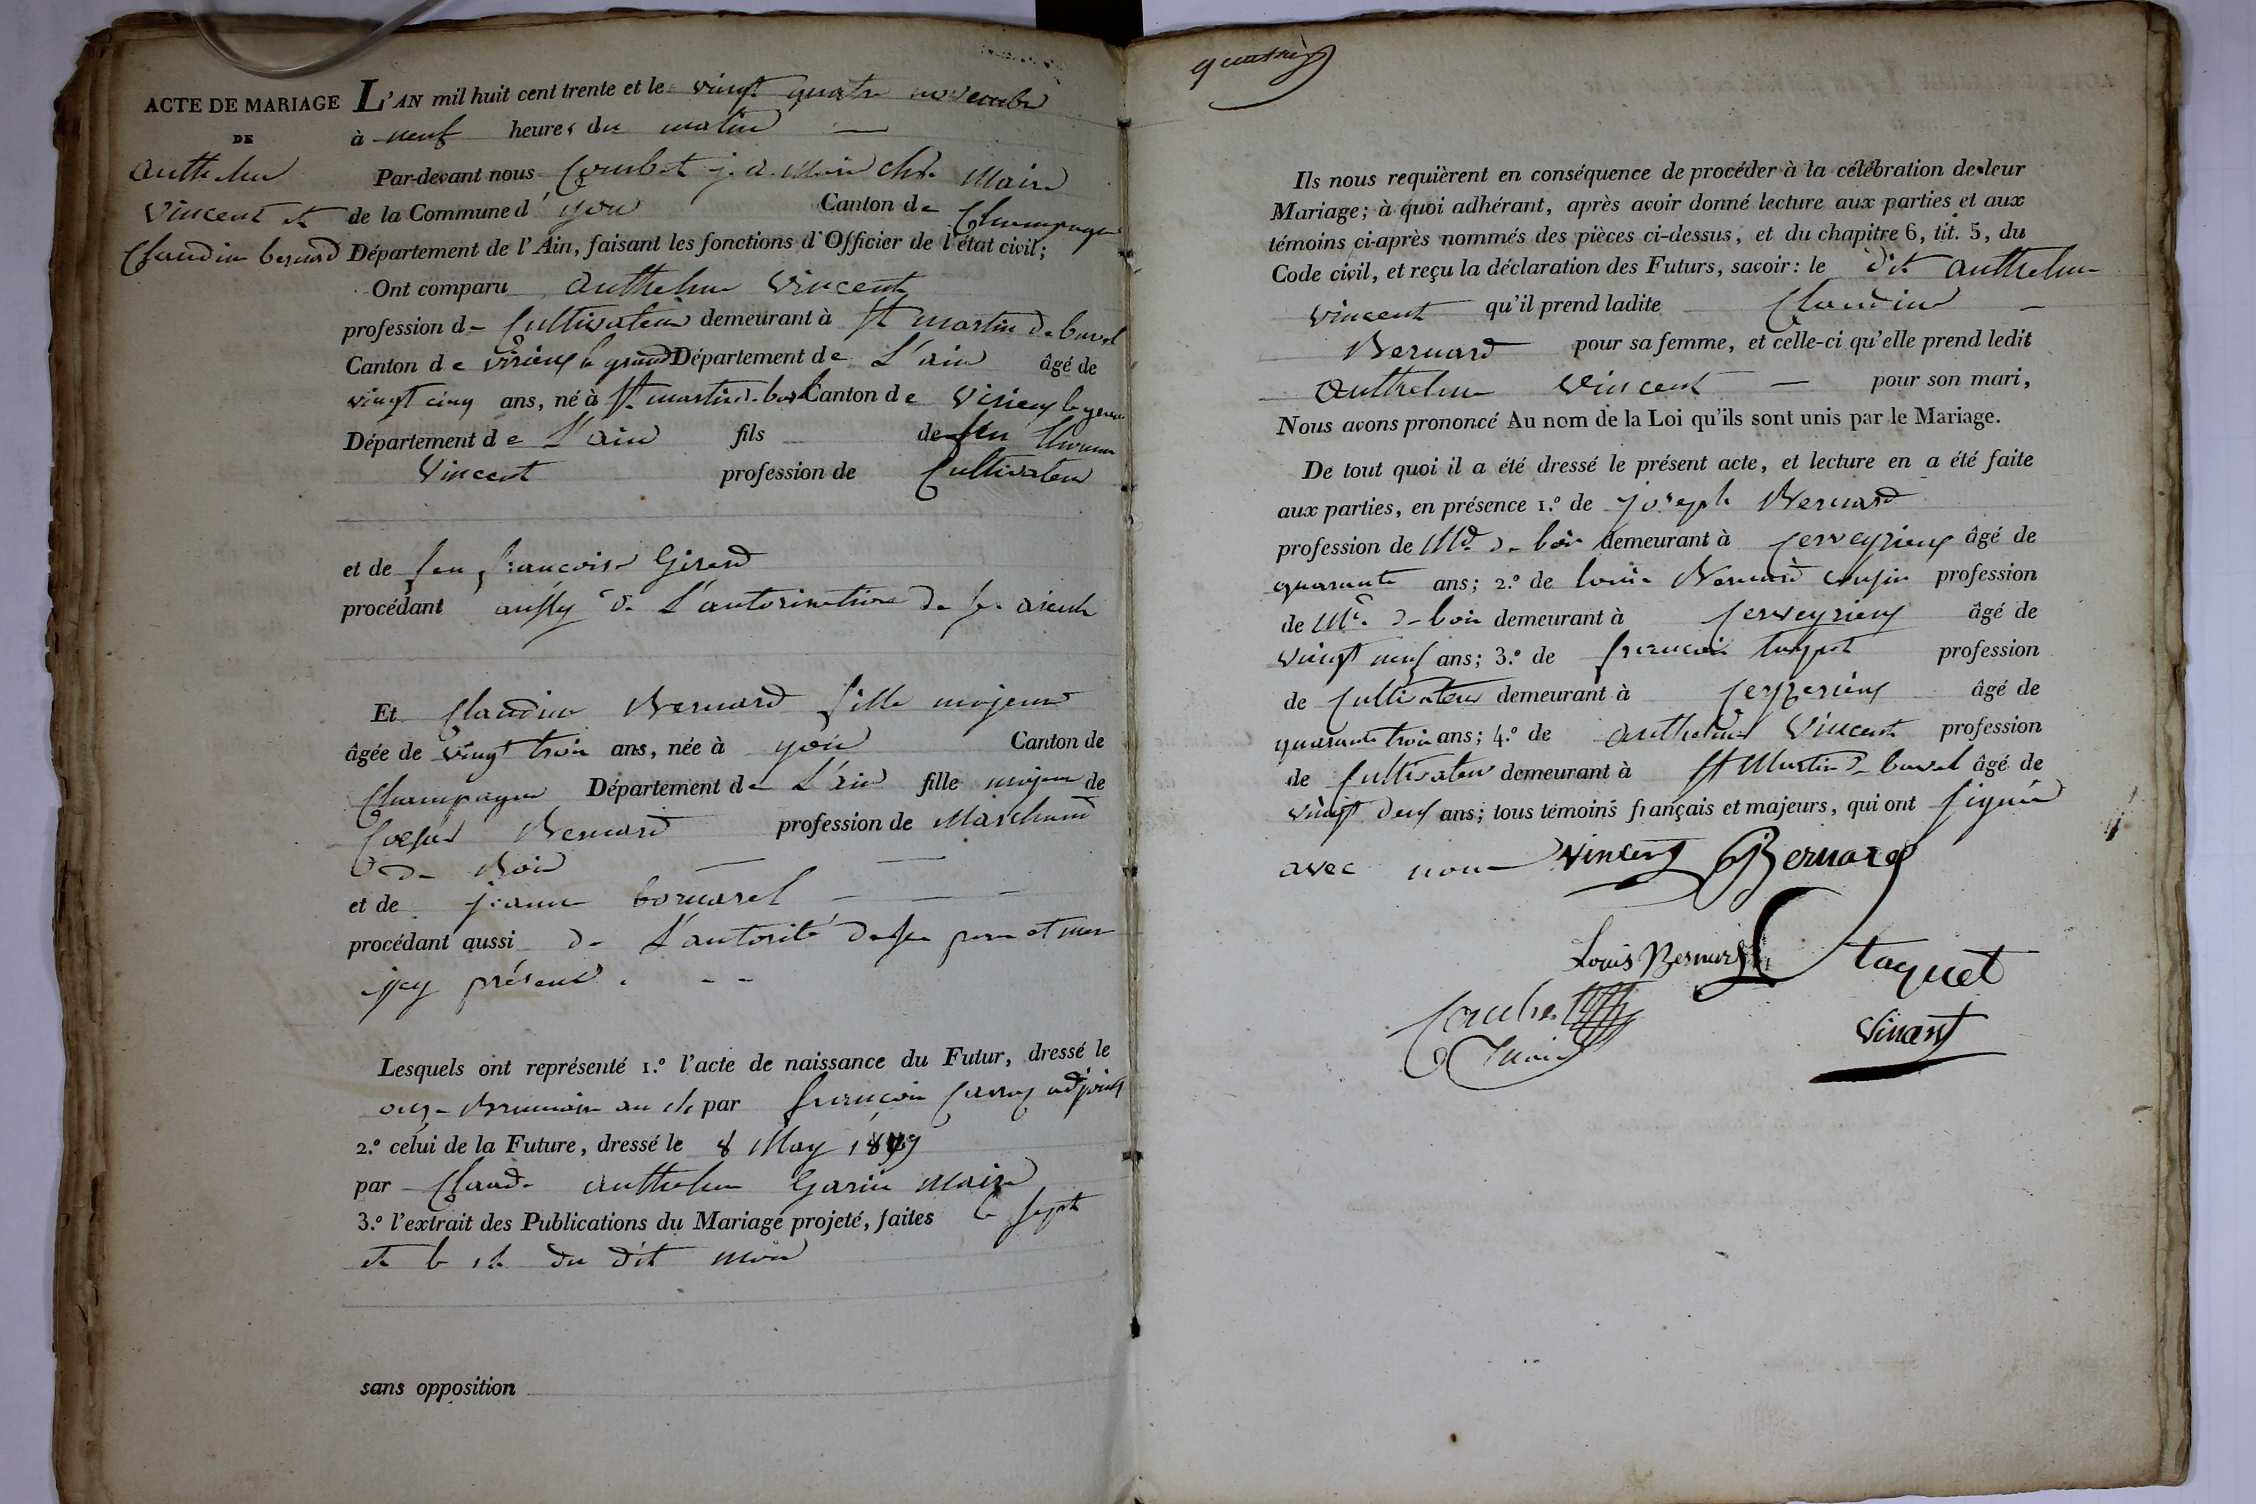 ACTE DE MARIAGE
DE
Anthelme
Vincent et
Claudine bernard
L'AN mil huit cent trente et le vingt quatre novembre
à neuf heures du matin
Par-devant nous Maire
de la Commune d' yon Canton de Champagne
Département de l'Ain, faisant les fonctions d'Officier de l'état civil;
Ont comparu Anthelme Vincent
profession de Cultivateur demeurant à St martin de bavel
Canton de virieux le grand Département de L'ain âgé de
vingt cinq ans, né à St martin d. bavel Canton de virieux le grand
Département de L'ain fils de feu
Vincent profession de Cultivateur
et de feu françoise Girard
procédant aussy de L'autorisation de ses
Et Claudine Bernard fille majeure
âgée de vingt trois ans, née à yon Canton de
Champagne Département de L'ain fille majeure de
Bernard profession de Marchand
de Bois
et de jeanne bornarel
procédant aussi de L'autorité de ses pere et mere
icy présent.
Lesquels ont représenté 1.º l'acte de naissance du Futur, dressé le
onze Brumaire an 14 par françois adjoint
2.º celui de la Future, dressé le 8 May
par Claude anthelme Garin Maire
3.º l'extrait des Publications du Mariage projeté, faites le sept
et le 14 du dit mois
sans opposition
Ils nous requièrent en conséquence de procéder à la célébration de leur
Mariage; à quoi adhérant, après avoir donné lecture aux parties et aux
témoins ci-après nommés des pièces ci-dessus, et du chapitre 6, tit. 5, du
Code civil, et reçu la déclaration des Futurs, savoir: le dit anthelme
vincent qu'il prend ladite Claudine
Bernard pour sa femme, et celle-ci qu'elle prend ledit
Anthelme Vincent pour son mari,
Nous avons prononcé Au nom de la Loi qu'ils sont unis par le Mariage.
De tout quoi il a été dressé le présent acte, et lecture en a été faite
aux parties, en présence 1.º de joseph Bernard
profession de Md de bois demeurant à Cerveyrieux âgé de
quarante ans; 2.º de louis Bernard cousin profession
de Md. de bois demeurant à Cerveyrieux âgé de
vingt neuf ans; 3.º de françois profession
de Cultivateur demeurant à âgé de
quarante trois ans; 4.º de anthelme Vincent profession
de Cultivateur demeurant à St Martin de bavel âgé de
vingt deux ans; tous témoins français et majeurs, qui ont signé
avec nous Vincent Bernard
Louis Bernard taquet
Combet
Maire
Vincent